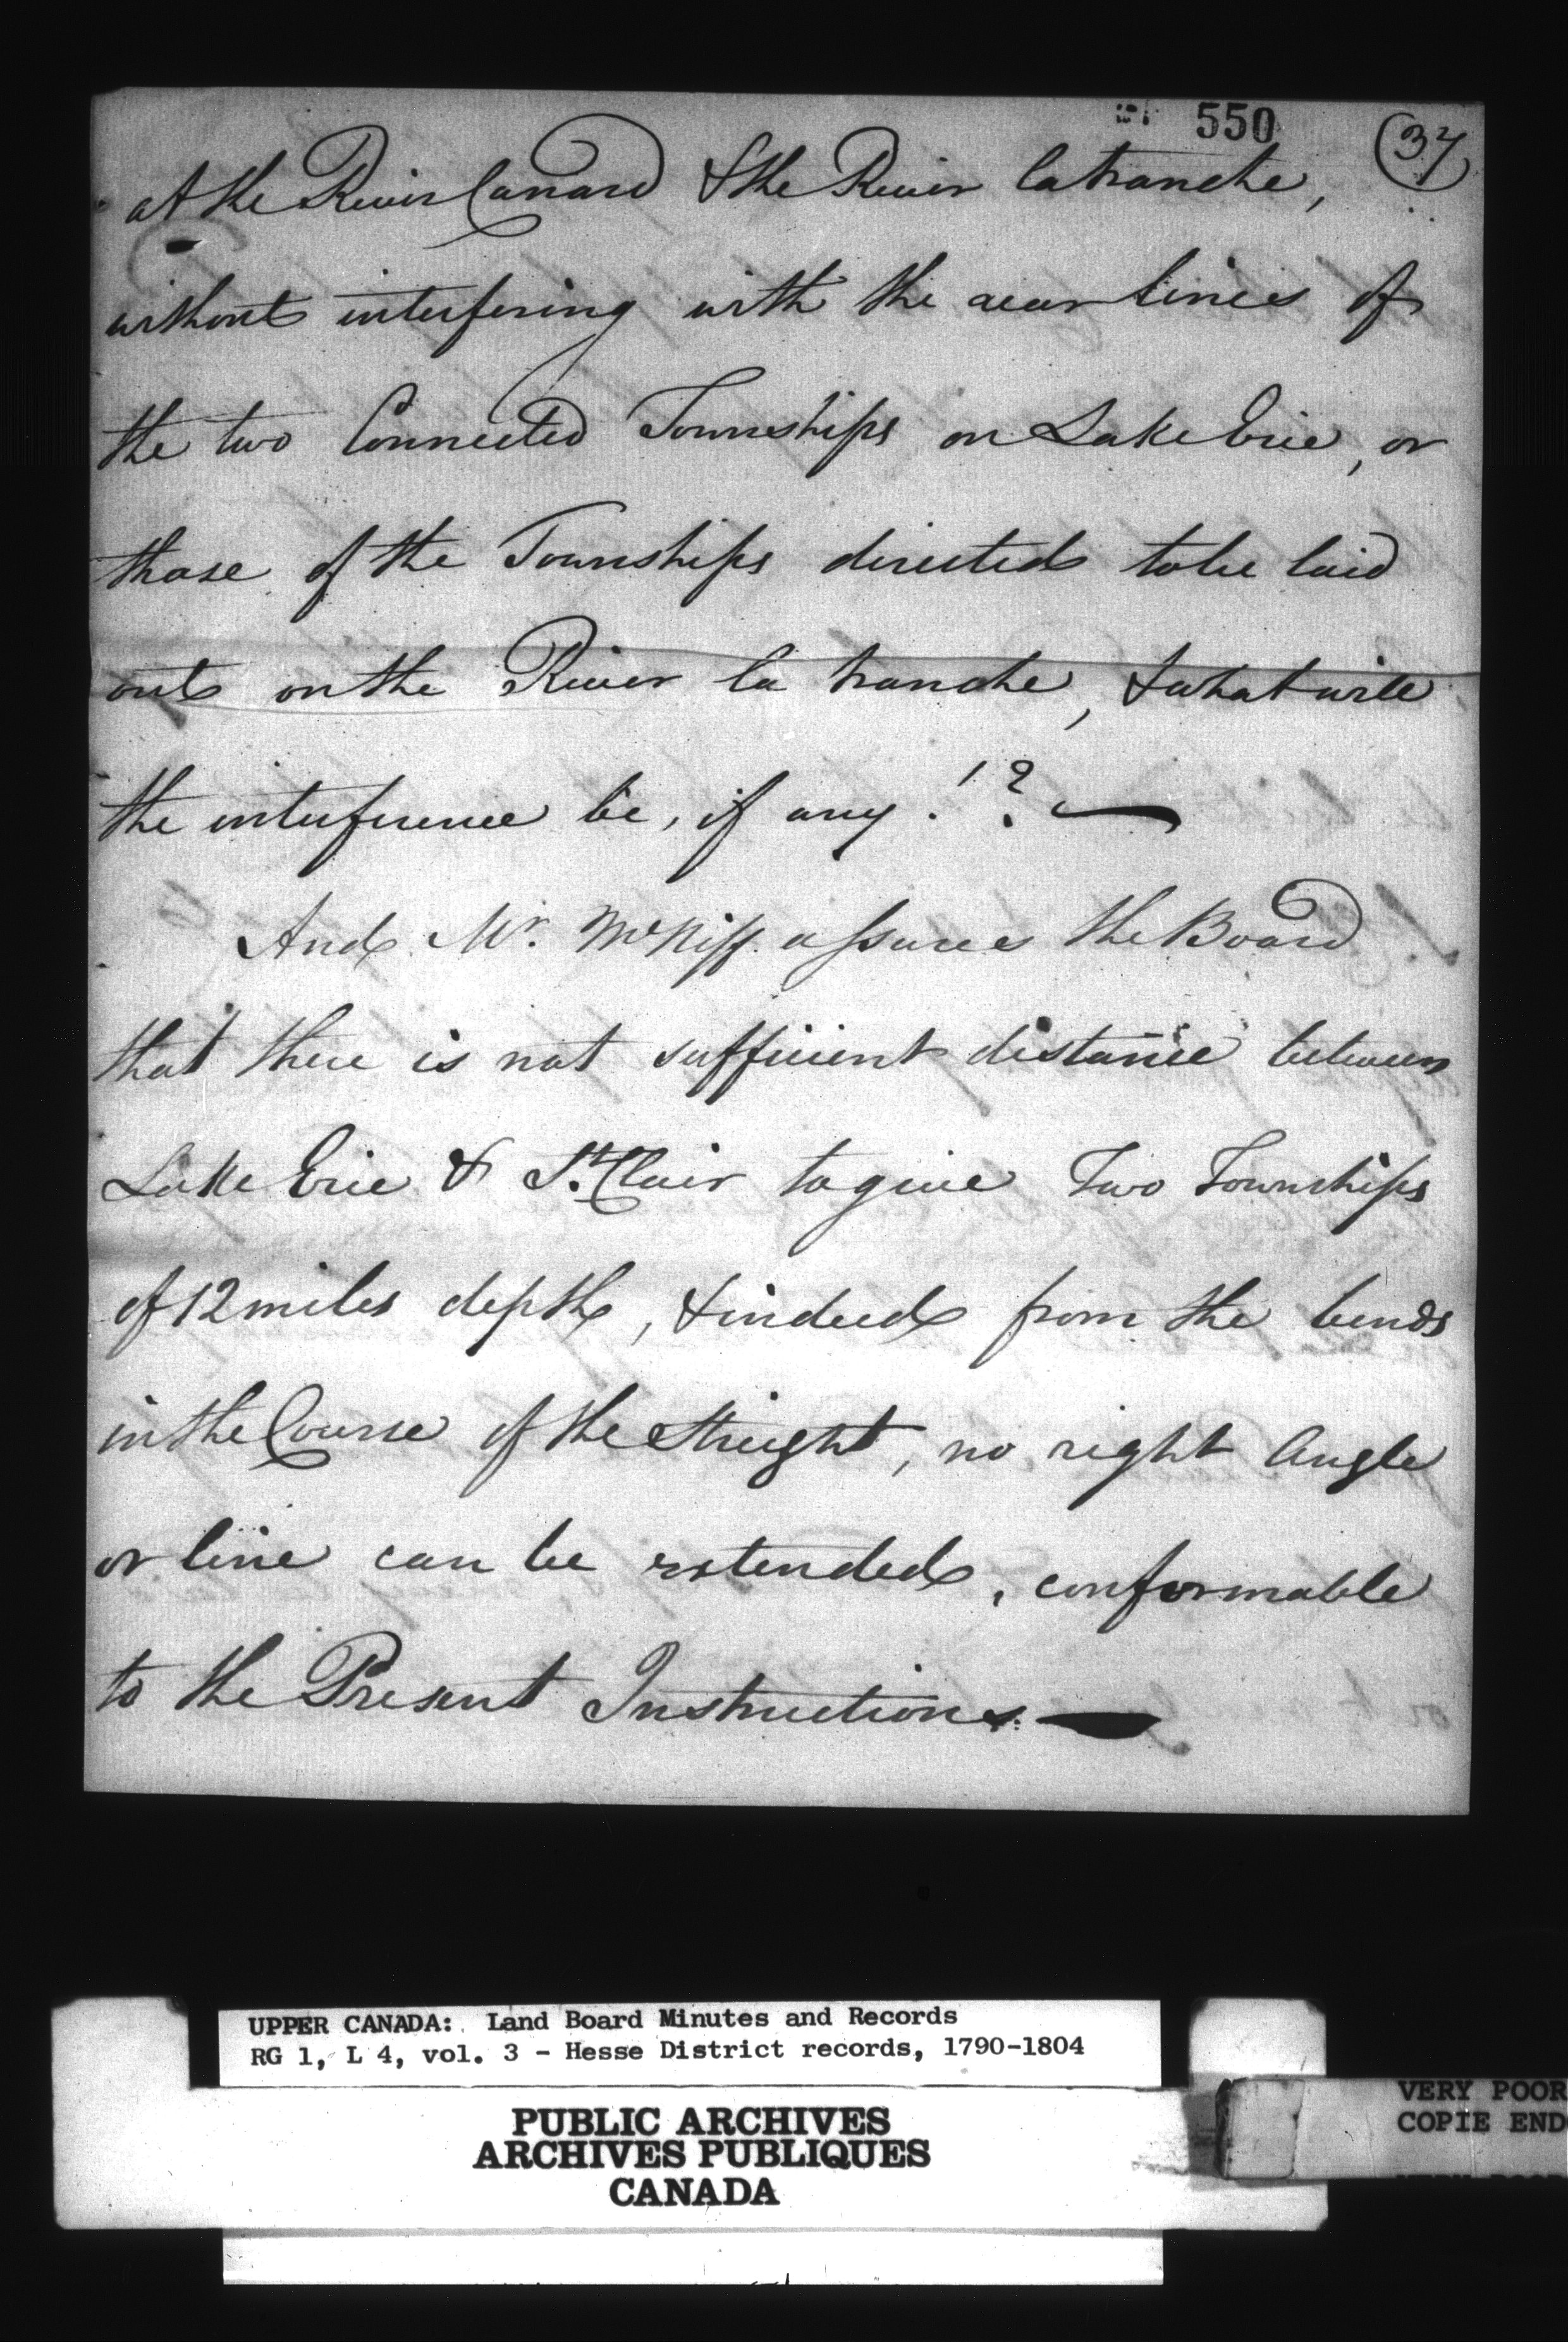 550
37
at the River Canard & the River latranche,
without interfering with the rear lines of
the two Connected Townships on Lake Erie, or
those of the Townships directed to be laid
out on the River la tranche, & what will
the interference be, if any!?
And Mr. McNiff assures the Board
that there is not sufficient distance between
Lake Erie & St. Clair to give Two Townships
of 12 miles depth, & indeed from the bends
in the Course of the Streight, no right Angle
or line can be extended, conformable
to the Present Instructions.
UPPER CANADA: Land Board Minutes and Records
RG 1, L 4, vol. 3 - Hesse District records, 1790-1804
PUBLIC ARCHIVES
ARCHIVES PUBLIQUES
CANADA
VERY POOR
COPIE END